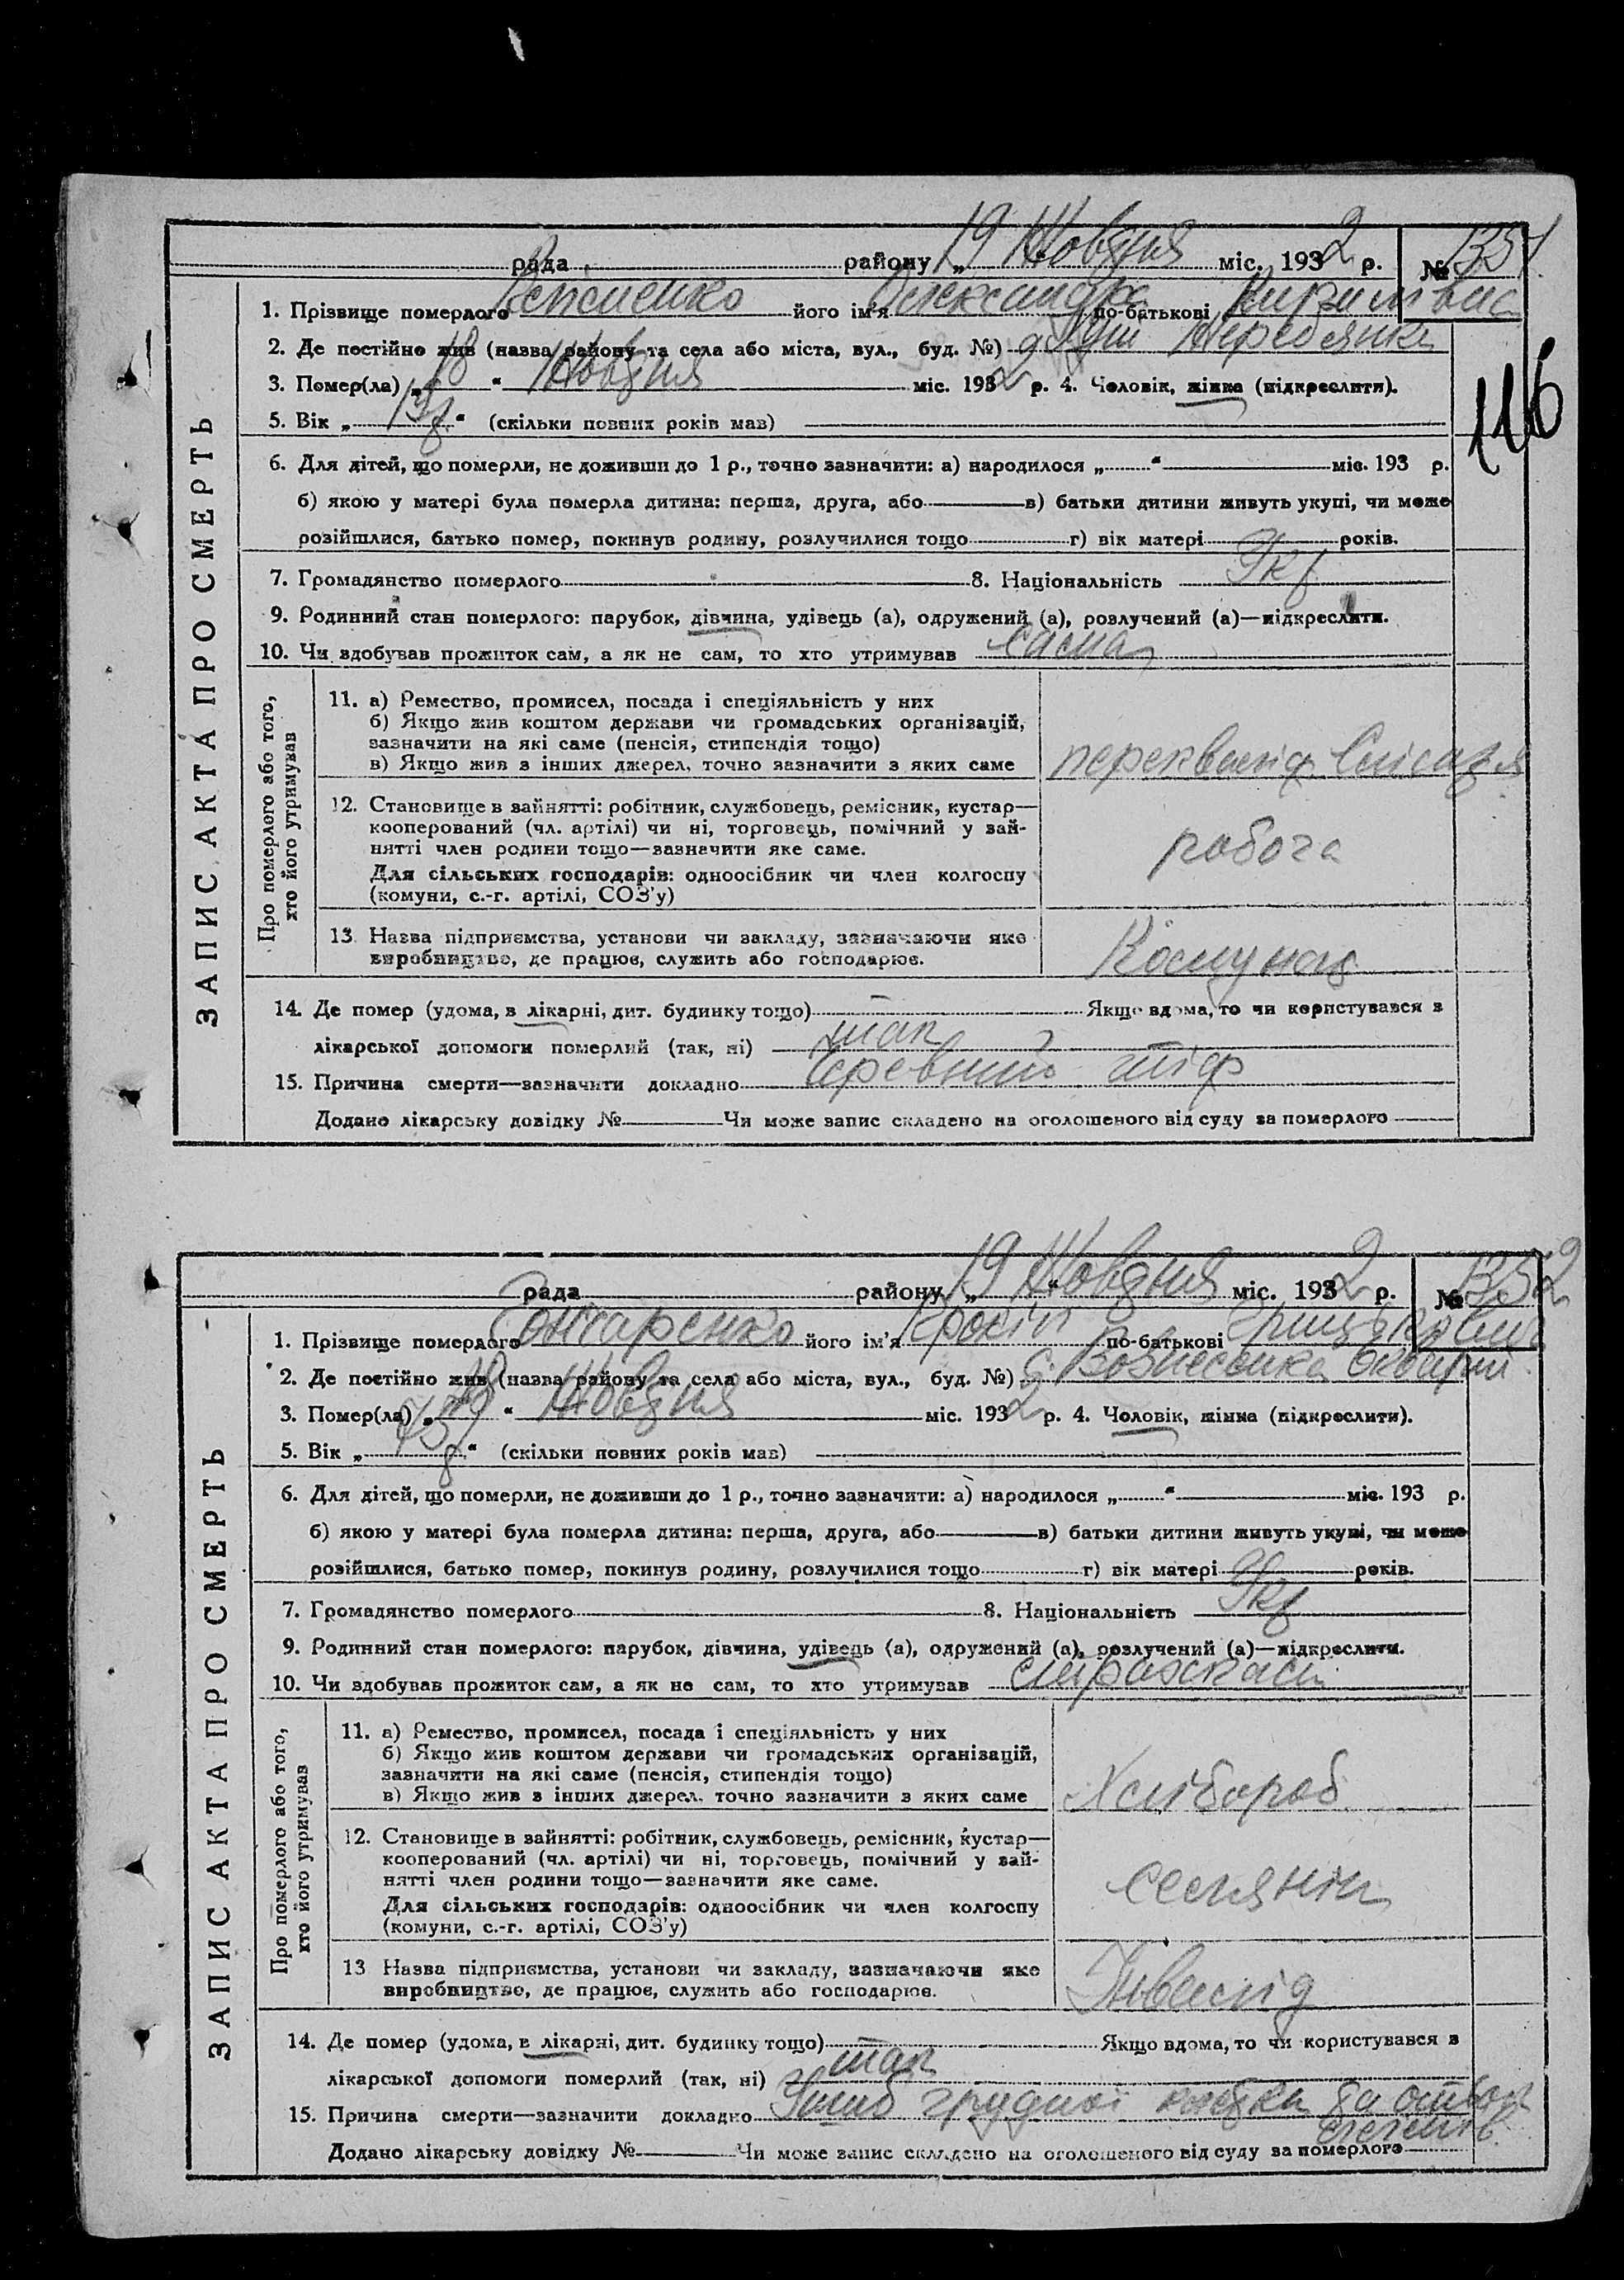 рада района „19 Жовтня міс. 1932 р. № 1351
1. Прізвище померлого його ім'я Олександра по-батькові
2. Де постійно жив (назва району та села або міста, вул., буд. №)
3. Помер(ла) „18" Жовтня міс. 1932 р. 4. Чоловік, жінка (підкреслити).
116
5. Вік „ " (скільки повних років мав)
6. Для дітей, що померли, не доживши до 1 р., точно зазначити: а) народилося „ " міс. 193 р.
б) якою у матері була померла дитина: перша, друга, або в) батьки дитини живуть укупі, чи може
розійшлися, батько помер, покинув родину, розлучилися тощо г) вік матері років.
7. Громадянство померлого 8. Національність Укр
9. Родинний стан померлого: парубок, дівчина, удівець (а), одружений (а), розлучений (а)—підкреслити.
10. Чи здобував прожиток сам, а як не сам, то хто утримував сама
ЗАПИС АКТА ПРО СМЕРТЬ
Про померлого або того,
хто його утримував
11. а) Ремество, промисел, посада і спеціяльність у них
б) Якщо жив коштом держави чи громадських організацій,
зазначити на які саме (пенсія, стипендія тощо)
в) Якщо жив з інших джерел, точно зазначити з яких саме
12. Становище в зайнятті: робітник, службовець, ремісник, кустар—
кооперований (чл. артілі) чи ні, торговець, помічний у зай-
нятті член родини тощо—зазначити яке саме.
Для сільських господарів: одноосібник чи член колгоспу
(комуни, с.-г. артілі, СОЗ'у)
робоча
13 Назва підприємства, установи чи закладу, зазначаючи яке
виробництво, де працює, служить або господарює.
14. Де помер (удома, в лікарні, дит. будинку тощо) Якщо вдома, то чи користувався з
лікарської допомоги померлий (так, ні) так
15. Причина смерти—зазначити докладно Черевний тіф
Додано лікарську довідку № Чи може запис складено на оголошеного від суду за померлого
рада району „19 Жовтня міс. 1932 р. № 1352
1. Прізвище померлого Гончаренко його ім'я по-батькові
2. Де постійно жив (назва району та села або міста, вул., буд. №) с. Вознесенка
3. Помер(ла) „ " Жовтня міс. 1932 р. 4. Чоловік, жінка (підкреслити).
5. Вік „ " (скільки повних років мав)
6. Для дітей, що померли, не доживши до 1 р., точно зазначити: а) народилося „ " міс. 193 р.
б) якою у матері була померла дитина: перша, друга, або в) батьки дитини живуть укупі, чи може
розійшлися, батько помер, покинув родину, розлучилися тощо г) вік матері років.
7. Громадянство померлого 8. Національність Укр
9. Родинний стан померлого: парубок, дівчина, удівець (а), одружений (а), розлучений (а)—підкреслити.
10. Чи здобував прожиток сам, а як не сам, то хто утримував страхкаса
ЗАПИС АКТА ПРО СМЕРТЬ
Про померлого або того,
хто його утримував
11. а) Ремество, промисел, посада і спеціяльність у них
б) Якщо жив коштом держави чи громадських організацій,
зазначити на які саме (пенсія, стипендія тощо)
в) Якщо жив з інших джерел, точно зазначити з яких саме
Хлібороб
12. Становище в зайнятті: робітник, службовець, ремісник, кустар—
кооперований (чл. артілі) чи ні, торговець, помічний у зай-
нятті член родини тощо—зазначити яке саме.
Для сільських господарів: одноосібник чи член колгоспу
(комуни, с.-г. артілі, СОЗ'у)
селянін
13 Назва підприємства, установи чи закладу, зазначаючи яке
виробництво, де працює, служить або господарює.
Інвалід
14. Де помер (удома, в лікарні, дит. будинку тощо) Якщо вдома, то чи користувався з
лікарської допомоги померлий (так, ні) так
15. Причина смерти—зазначити докладно грудної клітки та
легенів
Додано лікарську довідку № Чи може запис складено на оголошеного від суду за померлого